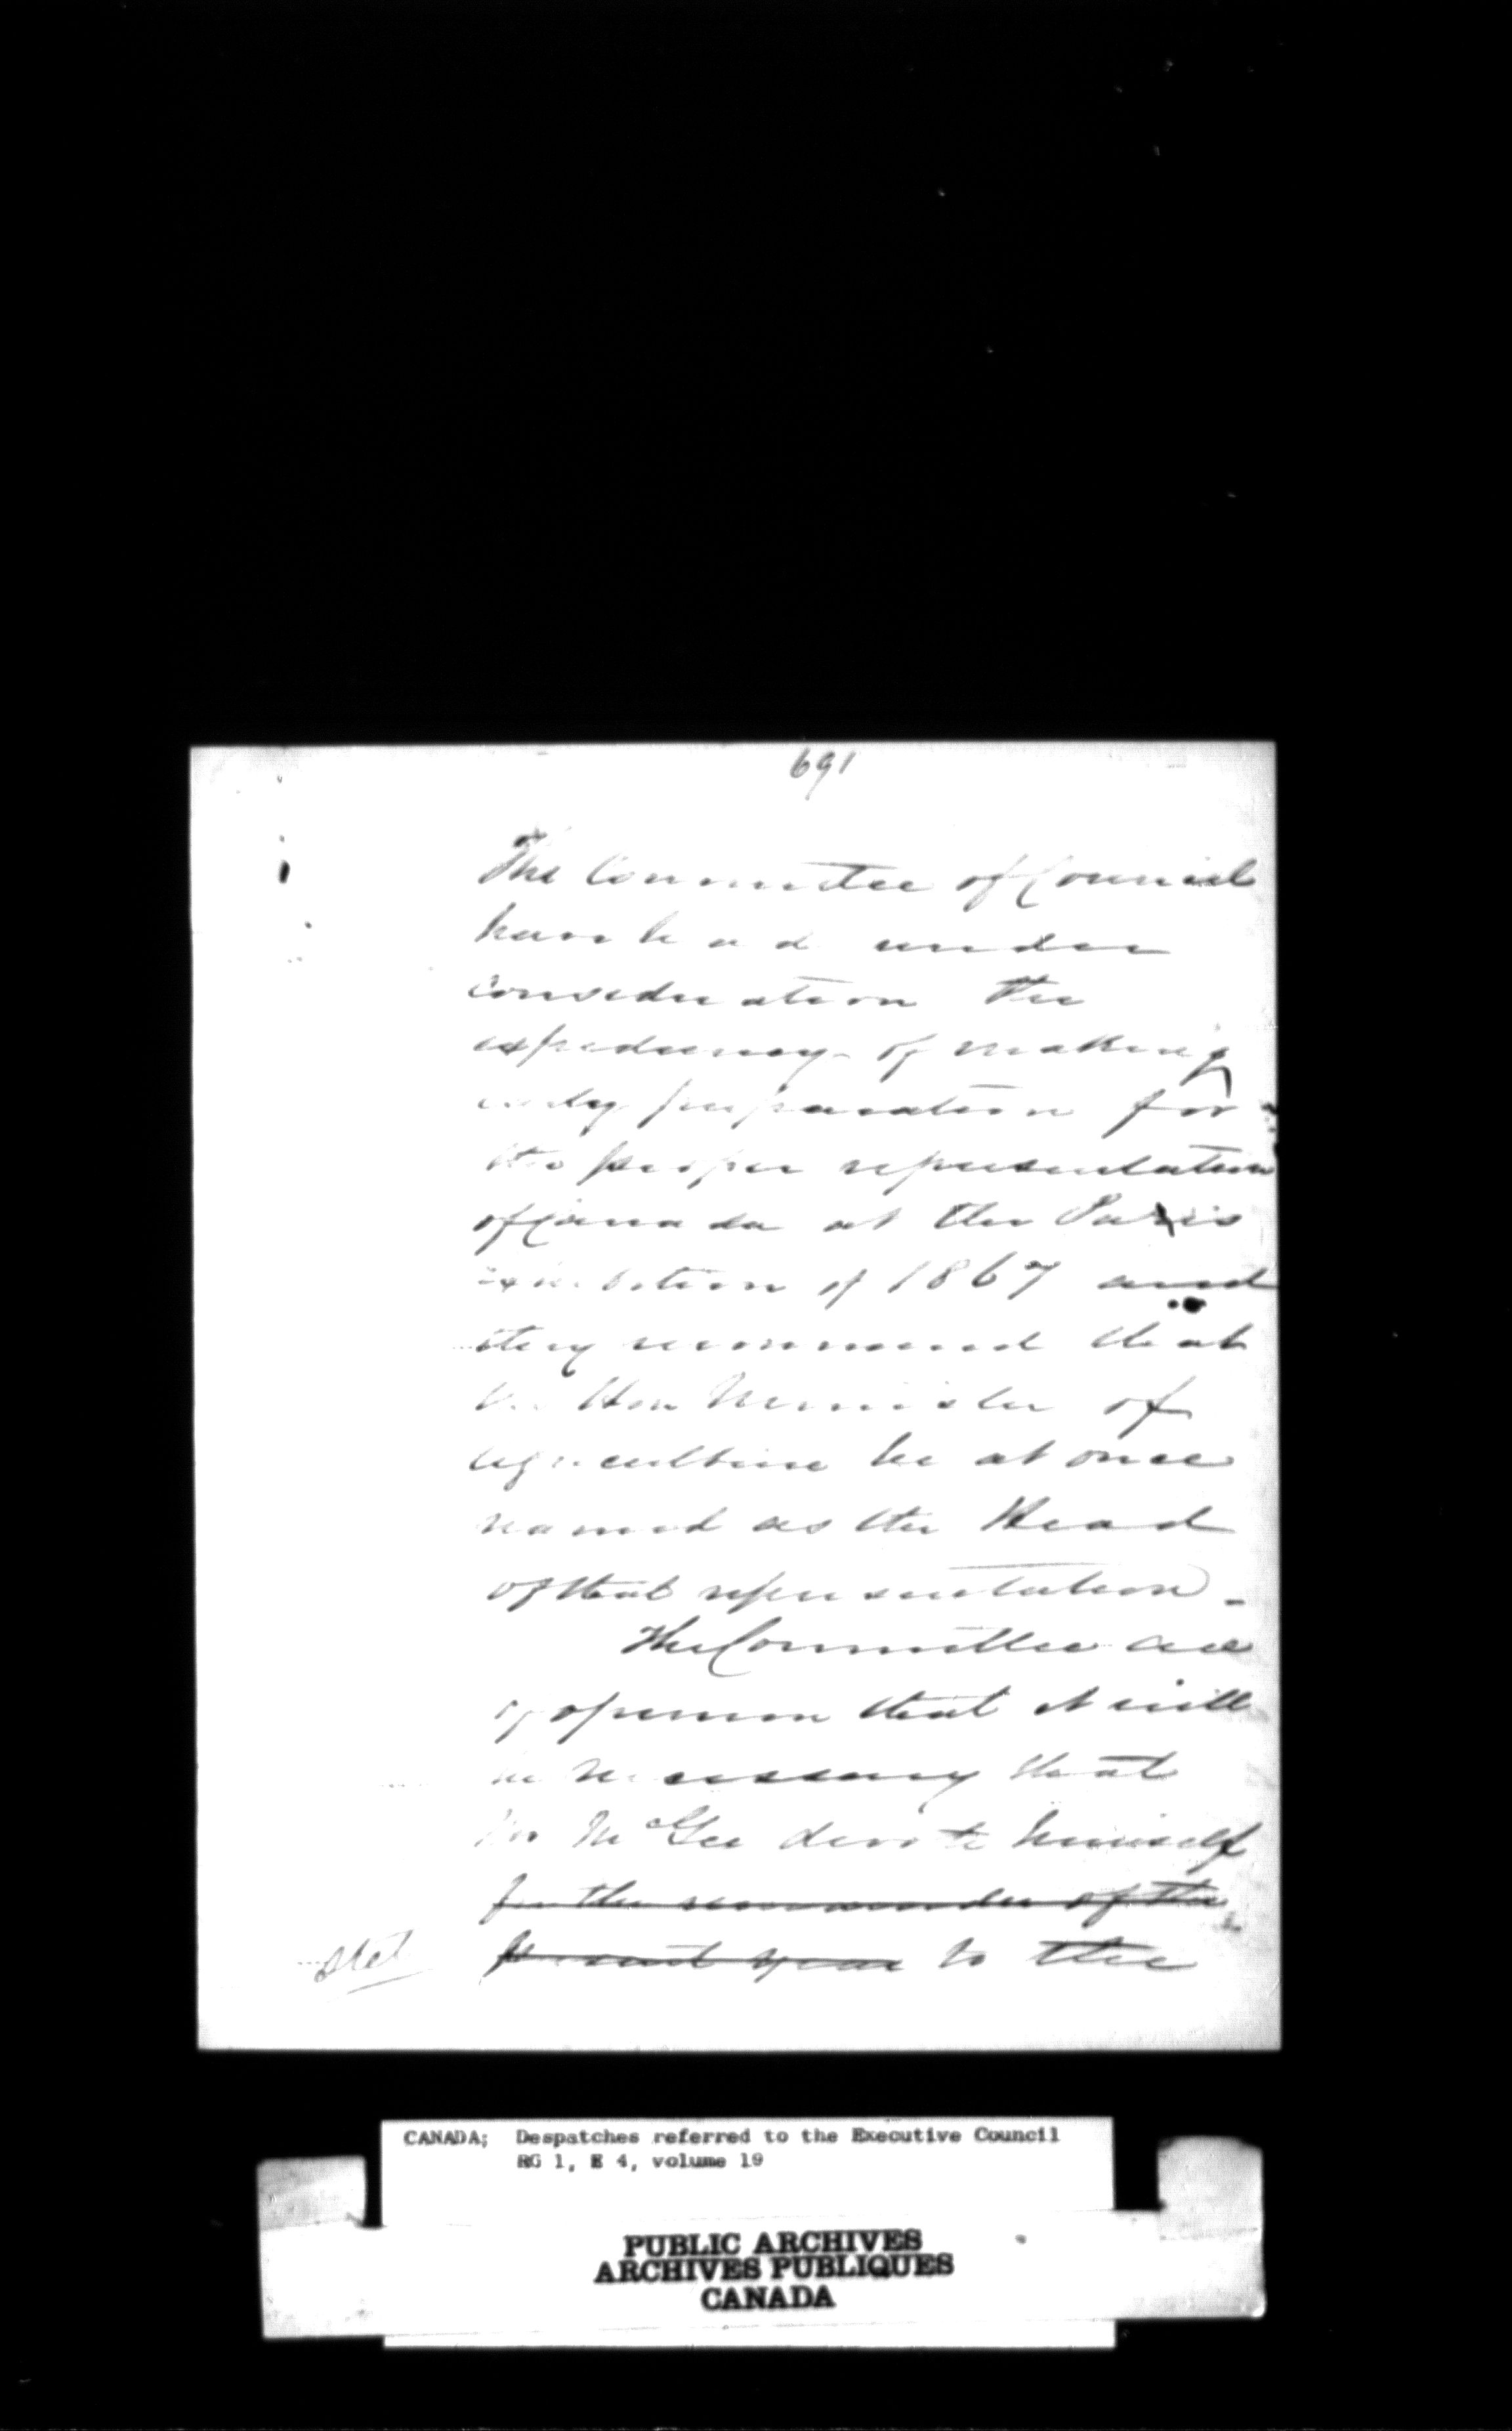 691
The Committee of Council
have had under
consideration the
expediency of making
early preparation for
the proper representation
of Canada at the Paris
Exhibition of 1867 and
they recommend that
the Hon Minister of
Agriculture be at once
named as the Head
of that representation -
The Committee are
of opinion that it will
be necessary that
Mr McGee devote himself
for the remainder of the
present year to the
stet
CANADA; Despatches referred to the Executive Council
RG 1, E 4, volume 19
PUBLIC ARCHIVES
ARCHIVES PUBLIQUES
CANADA